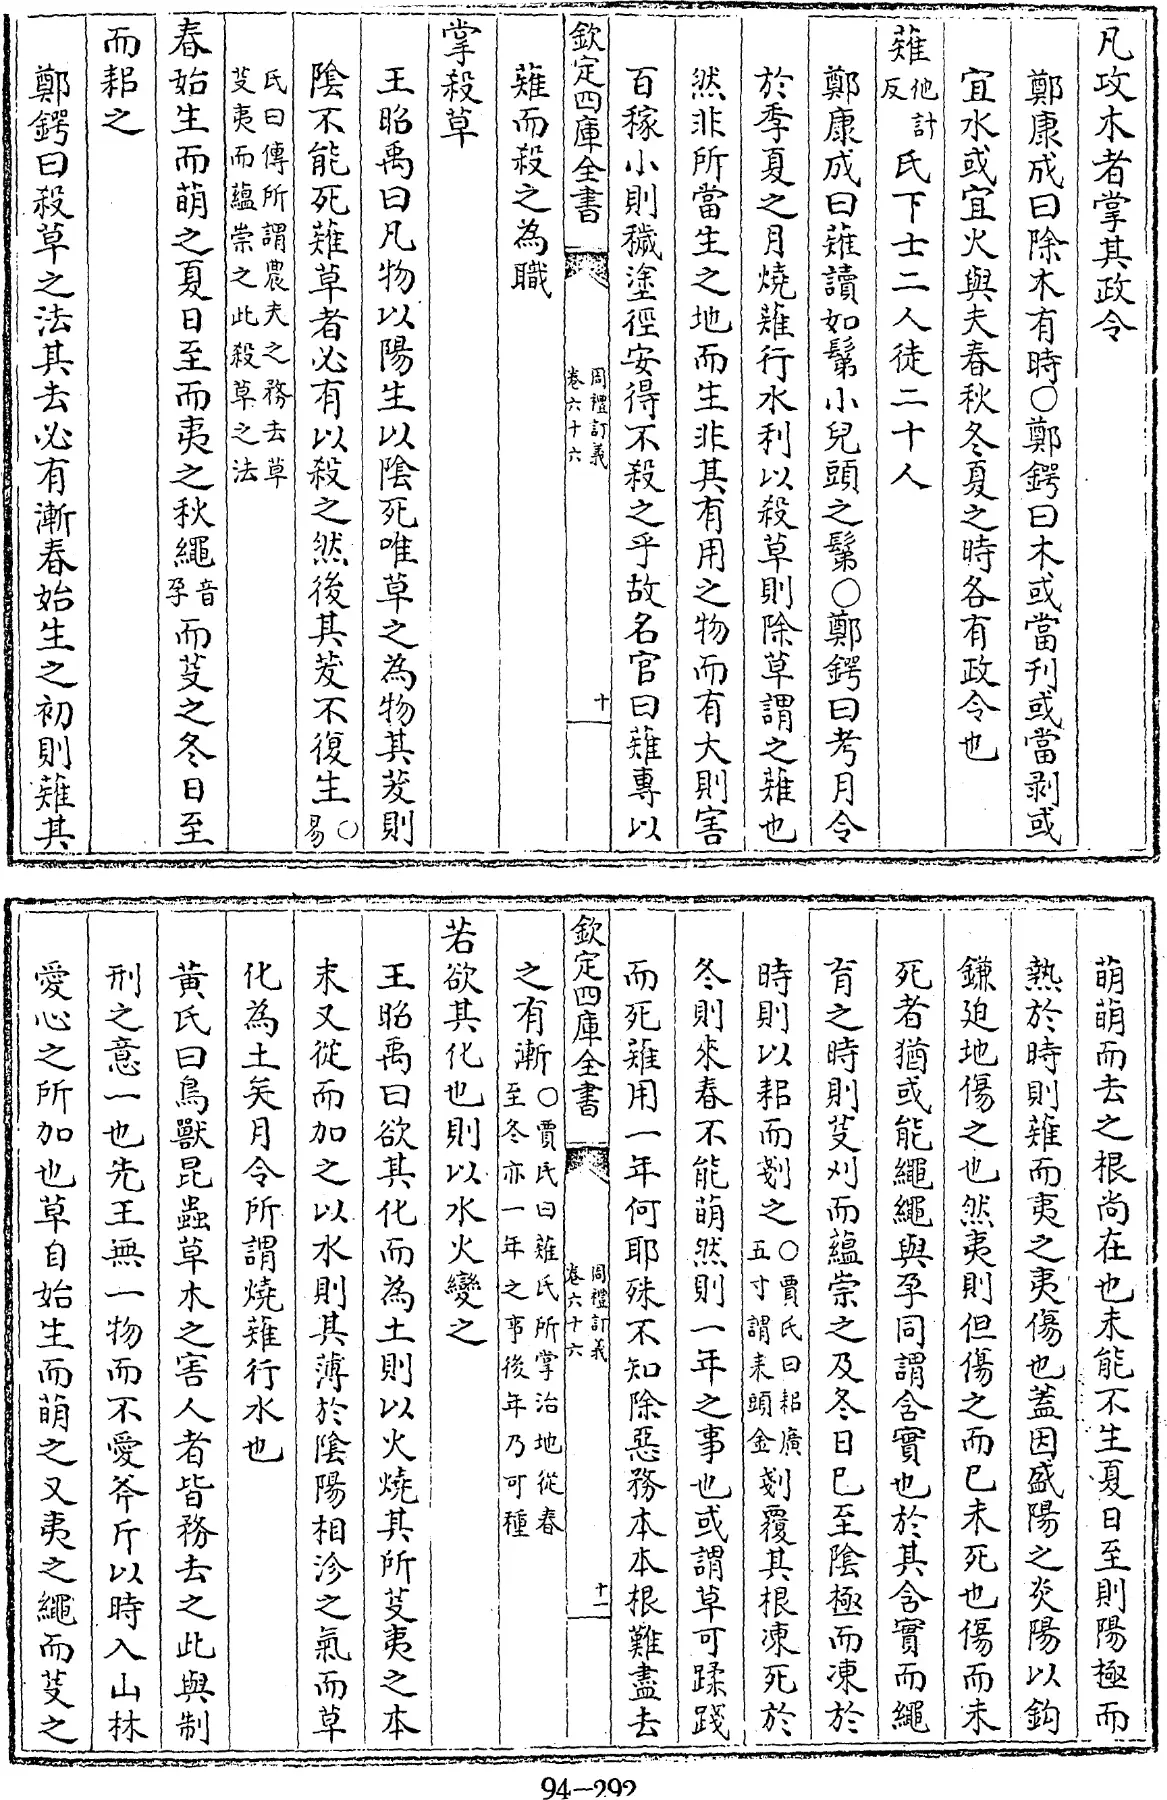 凡攻木者掌其政令
鄭康成曰除木有時○鄭鍔曰木或當刋或當剥或
宜水或宜火與夫春秋冬夏之時各有政令也
薙他計反氏下士二人徒二十人
鄭康成曰薙讀如鬀小兒頭之鬀○鄭鍔曰考月令
於季夏之月燒薙行水利以殺草則除草謂之薙也
然非所當生之地而生非其有用之物而有大則害
百稼小則穢塗徑安得不殺之乎故名官曰薙專以
欽定四庫全書
周禮訂義
卷六十六
十
薙而殺之為職
掌殺草
王昭禹曰凡物以陽生以陰死唯草之為物其茇則
陰不能死薙草者必有以殺之然後其茇不復生○易
氏曰傳所謂農夫之務去草
芟夷而蘊崇之此殺草之法
春始生而萌之夏日至而夷之秋繩音孕而芟之冬日至
而耜之
鄭鍔曰殺草之法其去必有漸春始生之初則薙其
萌萌而去之根尚在也未能不生夏日至則陽極而
熱於時則薙而夷之夷傷也蓋因盛陽之炎陽以鈎
鎌廹地傷之也然夷則但傷之而已未死也傷而未
死者猶或能繩繩與孕同謂含實也於其含實而繩
育之時則芟刈而蘊崇之及冬日已至陰極而凍於
時則以耜而剗之○賈氏曰耜廣五寸謂耒頭金剗覆其根凍死於
冬則來春不能萌然則一年之事也或謂草可蹂踐
而死薙用一年何耶殊不知除惡務本本根難盡去
欽定四庫全書
周禮訂義
卷六十六
十一
之有漸○賈氏曰薙氏所掌治地從春至冬亦一年之事後年乃可種
若欲其化也則以水火變之
王昭禹曰欲其化而為土則以火燒其所芟夷之本
末又從而加之以水則其薄於陰陽相沴之氣而草
化為土矣月令所謂燒薙行水也
黄氏曰鳥獸昆蟲草木之害人者皆務去之此與制
刑之意一也先王無一物而不愛斧斤以時入山林
愛心之所加也草自始生而萌之又夷之繩而芟之
94—292